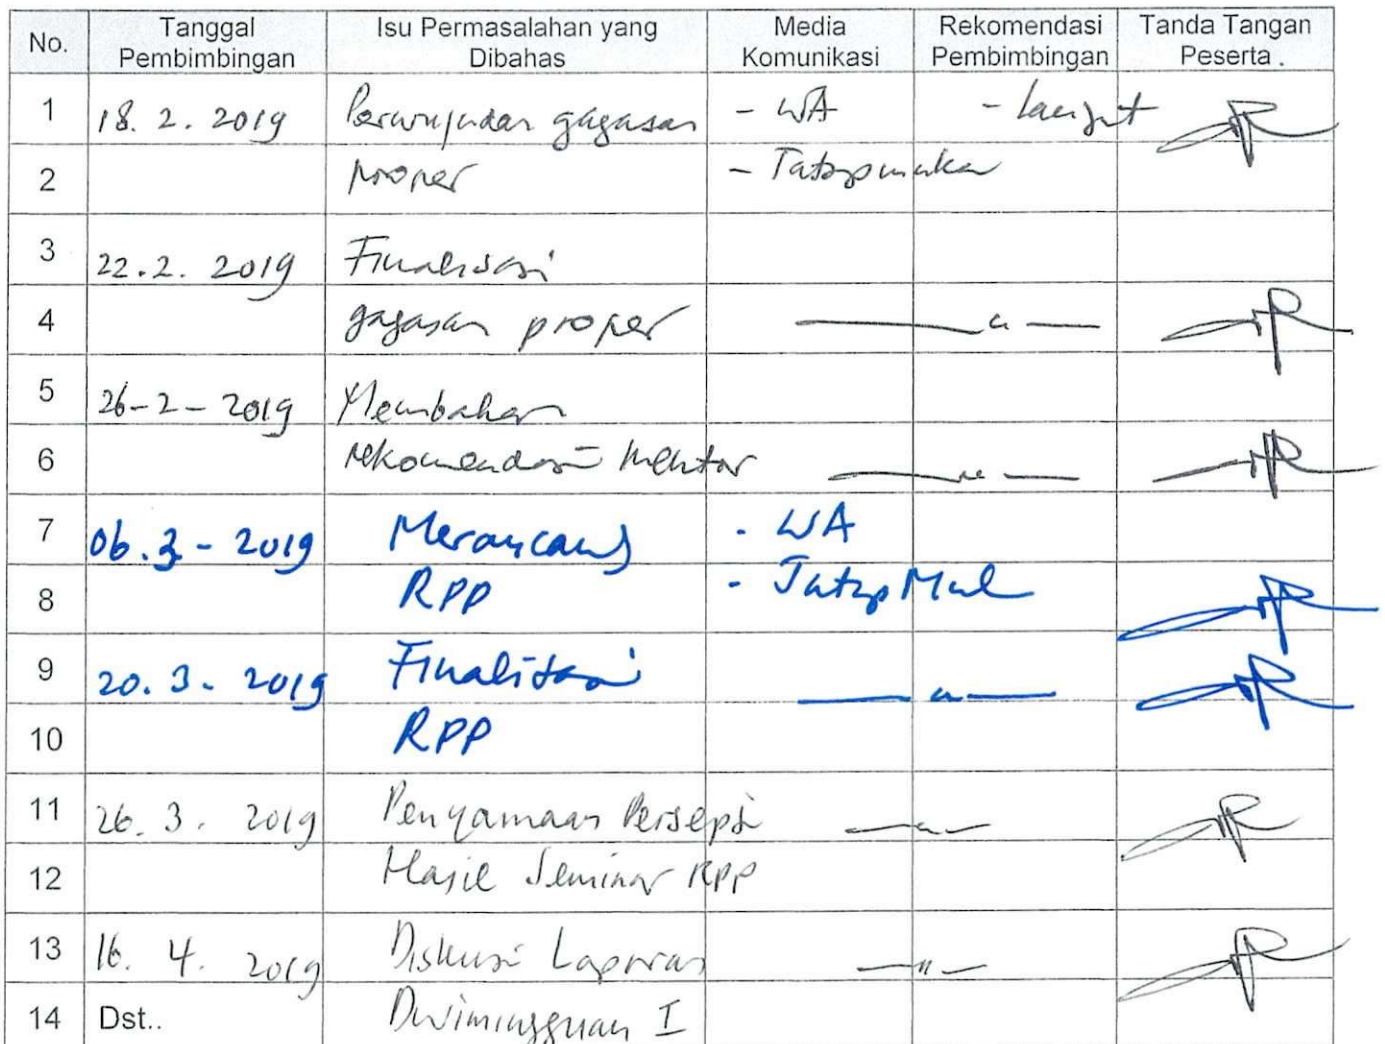 No. Tanggal Pembimbingan Isu Permasalahan yang Dibahas Media Komunikasi Rekomendasi Pembimbingan Tanda Tangan Peserta .
1 18. 2. 2019 Perwujudan gagasan - WA - lanjut
2 proper - Tatapmuka
3 22.2. 2019 Finalisasi
4 gagasan proper — " —
5 26-2-2019 Membahas
6 rekomendasi mentor — " —
7 06.3-2019 Merancang - WA
8 RPP - Tatap Muk
9 20.3.2019 Finalisasi — " —
10 RPP
11 26.3.2019 Penyamaan Persepsi — " —
12 Hasil Seminar RPP
13 16. 4. 2019 Diskusi Laporan — " —
14 Dst.. Dwimingguan I